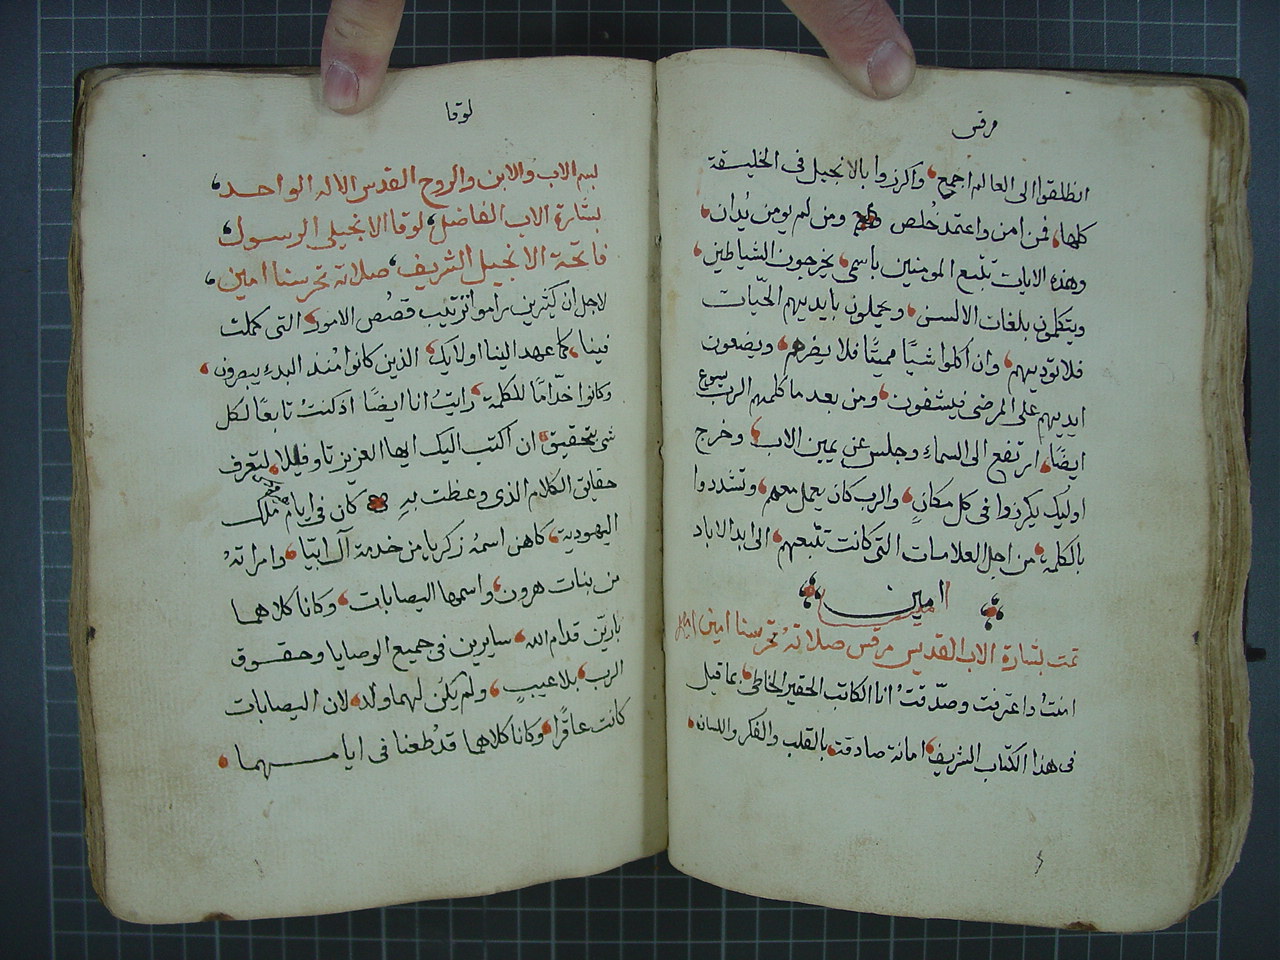 مرقس
انطلقوا الى العالم اجمع، واكرزوا بالانجيل فى الخليقة
كلها، فمن امن واعتمد خُلص ومن لم يومن يُدان،
وهذه الايات تتبع المومنين باسمى، يخرجون الشياطين،
ويتكلمون بلغات الالسنى، ويحملون بايديهم الحيّات
فلا توديهم، وان اكلوا شيًا مميتًا فلا يضرهم، ويضعون
ايديهم على المرضى فيشفون، ومن بعد ما كلمهم الرب يسوع
ايضًا، ارتفع الى السماء وجلس عن يمين الاب، وخرج
اوليك يكرزوا فى كل مكانٍ، والرب كان يعمل معهم، وتشددوا
بالكلمة، من اجل العلامات التى كانت تتبعهم، الى ابد الاباد
امين
تمت بشارة الاب القديس مرقس صلاته تحرسنا امين
امنتُ واعترفت وصدّقتُ انا الكاتب الحقير الخاطى، بما قيل
فى هذا الكتاب الشريف، امانة صادقت، بالقلب والفكر واللسان،
لوقا
بسم الاب والابن والروح القدس الاله الواحد،
بشارة الاب الفاضل، لوقا الانجيلى الرسول،
فاتحة الانجيل الشريف، صلاته تحرسنا امين،
لاجل ان كثيرين راموا ترتيب قصُص الامور، التى كملت
فينا، كما عهد الينا اولايك، الذين كانوا مُنذ البدء يبصرون،
وكانوا خدّامًا للكلمة، رايتُ انا ايضًا اذ كنتُ تابعًا لكل
شى بتحقيق، ان اكتب اليك ايها العزيز تاوفيلا، لتعرف
حقايق الكلام الذى وعظت بهِ كان فى ايام ملك
اليهودية، كاهن اسمهُ زكريا من خدمة آل ابيّا، وامراتهُ
من بنات هرون، واسمها اليصابات، وكانا كلاهما
بارّين قدام الله، سايرين فى جميع الوصايا وحقوق
الرب، بلا عيبٍ، ولم يكن لهما ولد، لان اليصابات
كانت عاقرًا، وكانا كلاهما قد طعنا فى ايامهما،